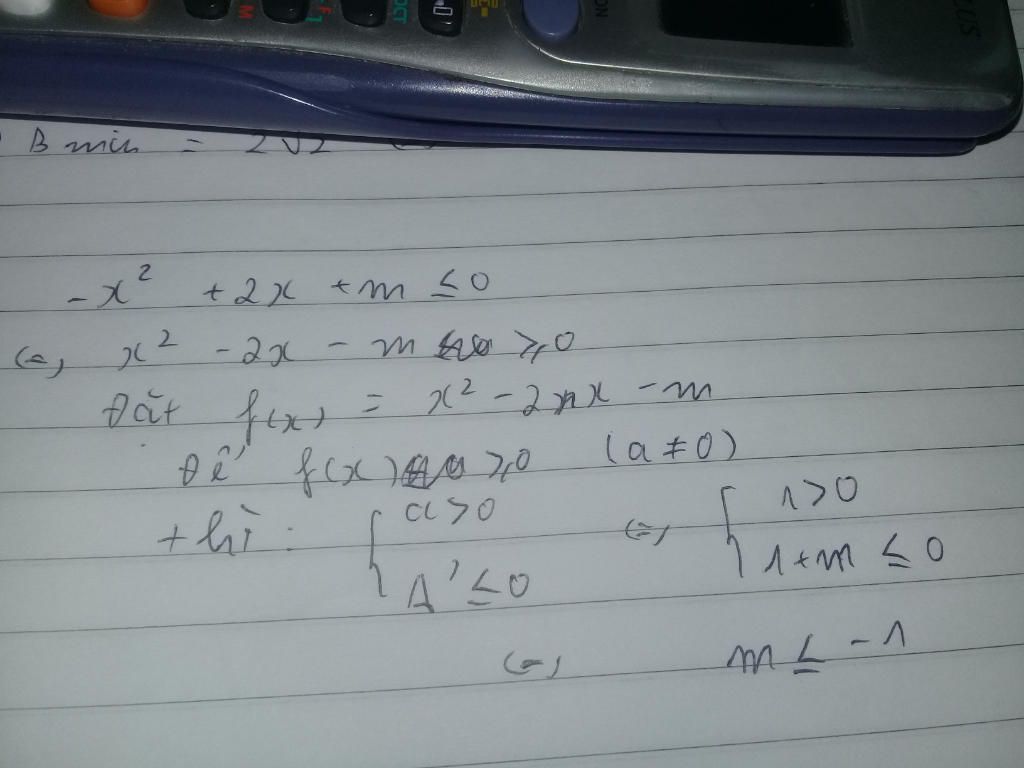 M
F1
OCT
ON
B min = 2√2
-x² + 2x + m ≤ 0
(=) x² - 2x - m ≥ 0
Đặt f(x) = x² - 2x - m
Để f(x) ≥ 0 (a ≠ 0)
thì : { a > 0 (=) { 1 > 0
Δ' ≤ 0 1 + m ≤ 0
(=) m ≤ -1